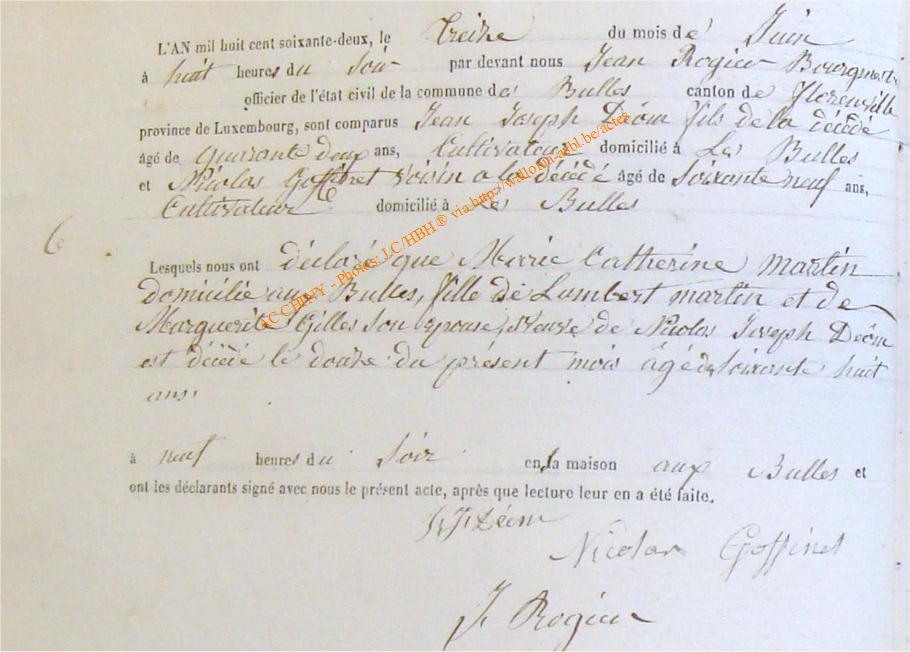 L'AN mil huit cent soixante-deux, le Treize du mois de Juin
à huit heures du Soir par devant nous Jean Rogier Bourgmestre
officier de l'état civil de la commune des Bulles canton de Florenville
province de Luxembourg, sont comparus Jean Joseph Déôm fils de la décédé
âgé de quarante deux ans, Cultivateur domicilié à Les Bulles
et Nicolas Goffinet voisin a la décédé âgé de Soixante neuf ans,
Cultivateur domicilié à Les Bulles
6
Lesquels nous ont déclaré que Marie Catherine Martin
domicilié aux Bulles, fille de Lambert martin et de
Marguerite Gilles son epouse, Veuve de Nicolas Joseph Déôm
est décédé le douze du présent mois âgé de soixante huit
ans.
à neuf heures du Soir en la maison aux Bulles et
ont les déclarants signé avec nous le présent acte, après que lecture leur en a été faite.
J. J. Déom
Nicolas Goffinet
J. Rogier
AC CHINY - Photos: J.C/HBH® via http://wallonia-asbl.be/actes